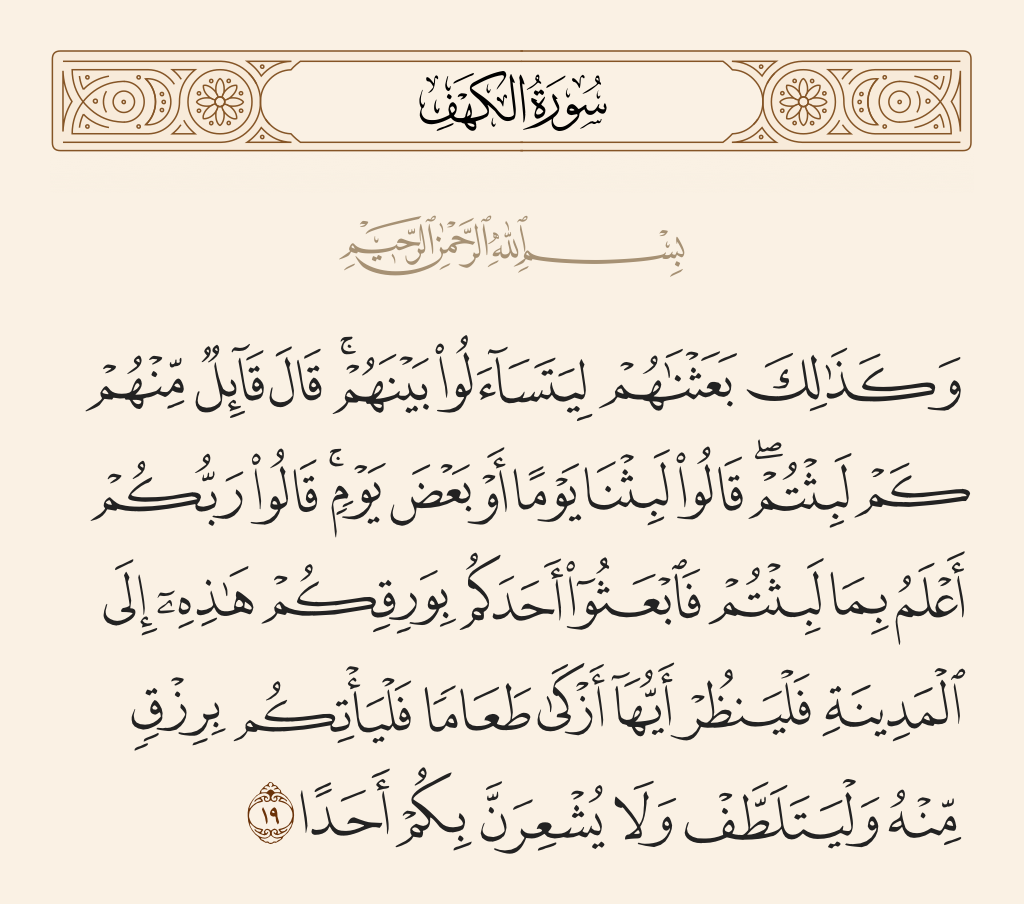 سُورَةُ الكَهْفِ
بِسْمِ ٱللَّهِ ٱلرَّحْمَٰنِ ٱلرَّحِيمِ
وَكَذَٰلِكَ بَعَثْنَٰهُمْ لِيَتَسَآءَلُوا۟ بَيْنَهُمْ ۚ قَالَ قَآئِلٌۭ مِّنْهُمْ
كَمْ لَبِثْتُمْ ۖ قَالُوا۟ لَبِثْنَا يَوْمًا أَوْ بَعْضَ يَوْمٍۢ ۚ قَالُوا۟ رَبُّكُمْ
أَعْلَمُ بِمَا لَبِثْتُمْ فَٱبْعَثُوٓا۟ أَحَدَكُم بِوَرِقِكُمْ هَٰذِهِۦٓ إِلَى
ٱلْمَدِينَةِ فَلْيَنظُرْ أَيُّهَآ أَزْكَىٰ طَعَامًۭا فَلْيَأْتِكُم بِرِزْقٍۢ
مِّنْهُ وَلْيَتَلَطَّفْ وَلَا يُشْعِرَنَّ بِكُمْ أَحَدًا ١٩